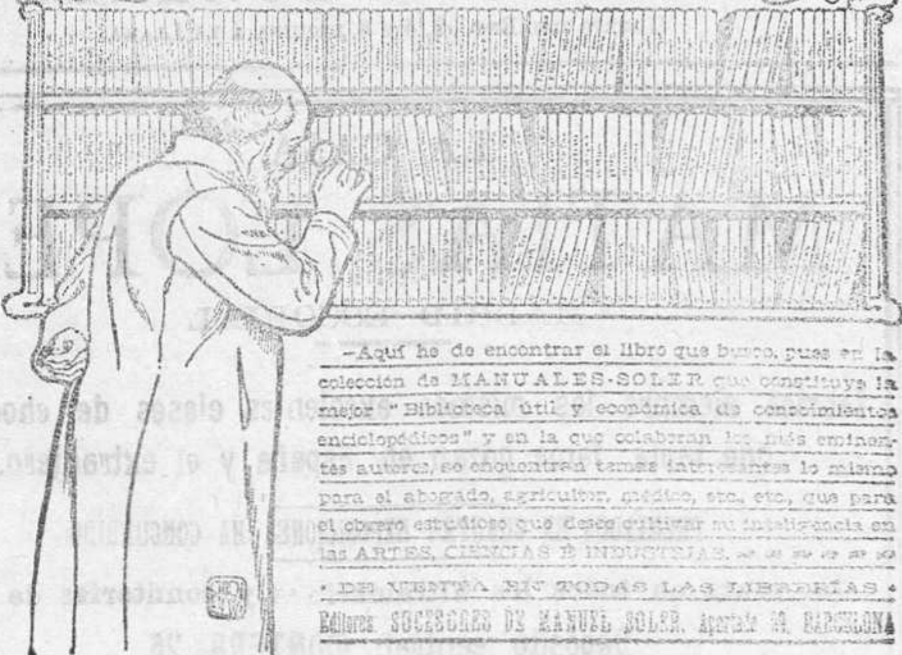 —Aquí he de encontrar el libro que busco, pues en la
colección de MANUALES-SOLER que constituye la
mejor "Biblioteca útil y económica de conocimientos
enciclopédicos" y en la que colaboran los más eminen-
tes autores, se encuentran temas interesantes lo mismo
para el abogado, agricultor, médico, etc., etc., que para
el obrero estudioso que desee cultivar su inteligencia en
las ARTES, CIENCIAS É INDUSTRIAS.
DE VENTA EN TODAS LAS LIBRERÍAS
Editores SUCESORES DE MANUEL SOLER. Apartado 89, BARCELONA